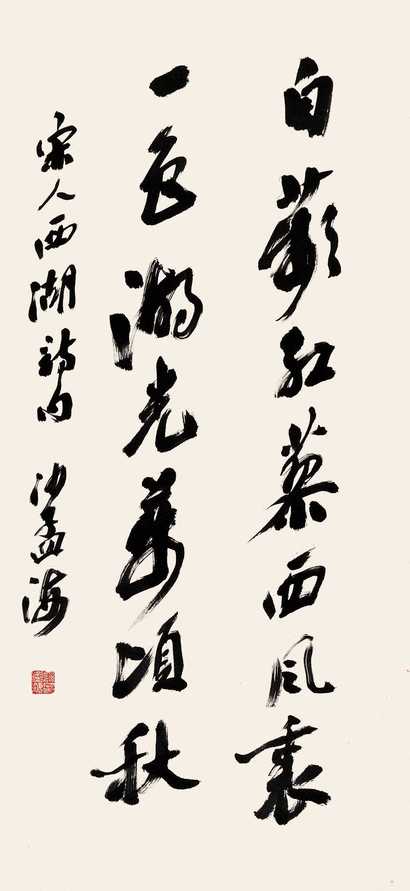 白蘋紅蓼西風裏
一色湖光萬頃秋
宋人西湖詩句 沙孟海